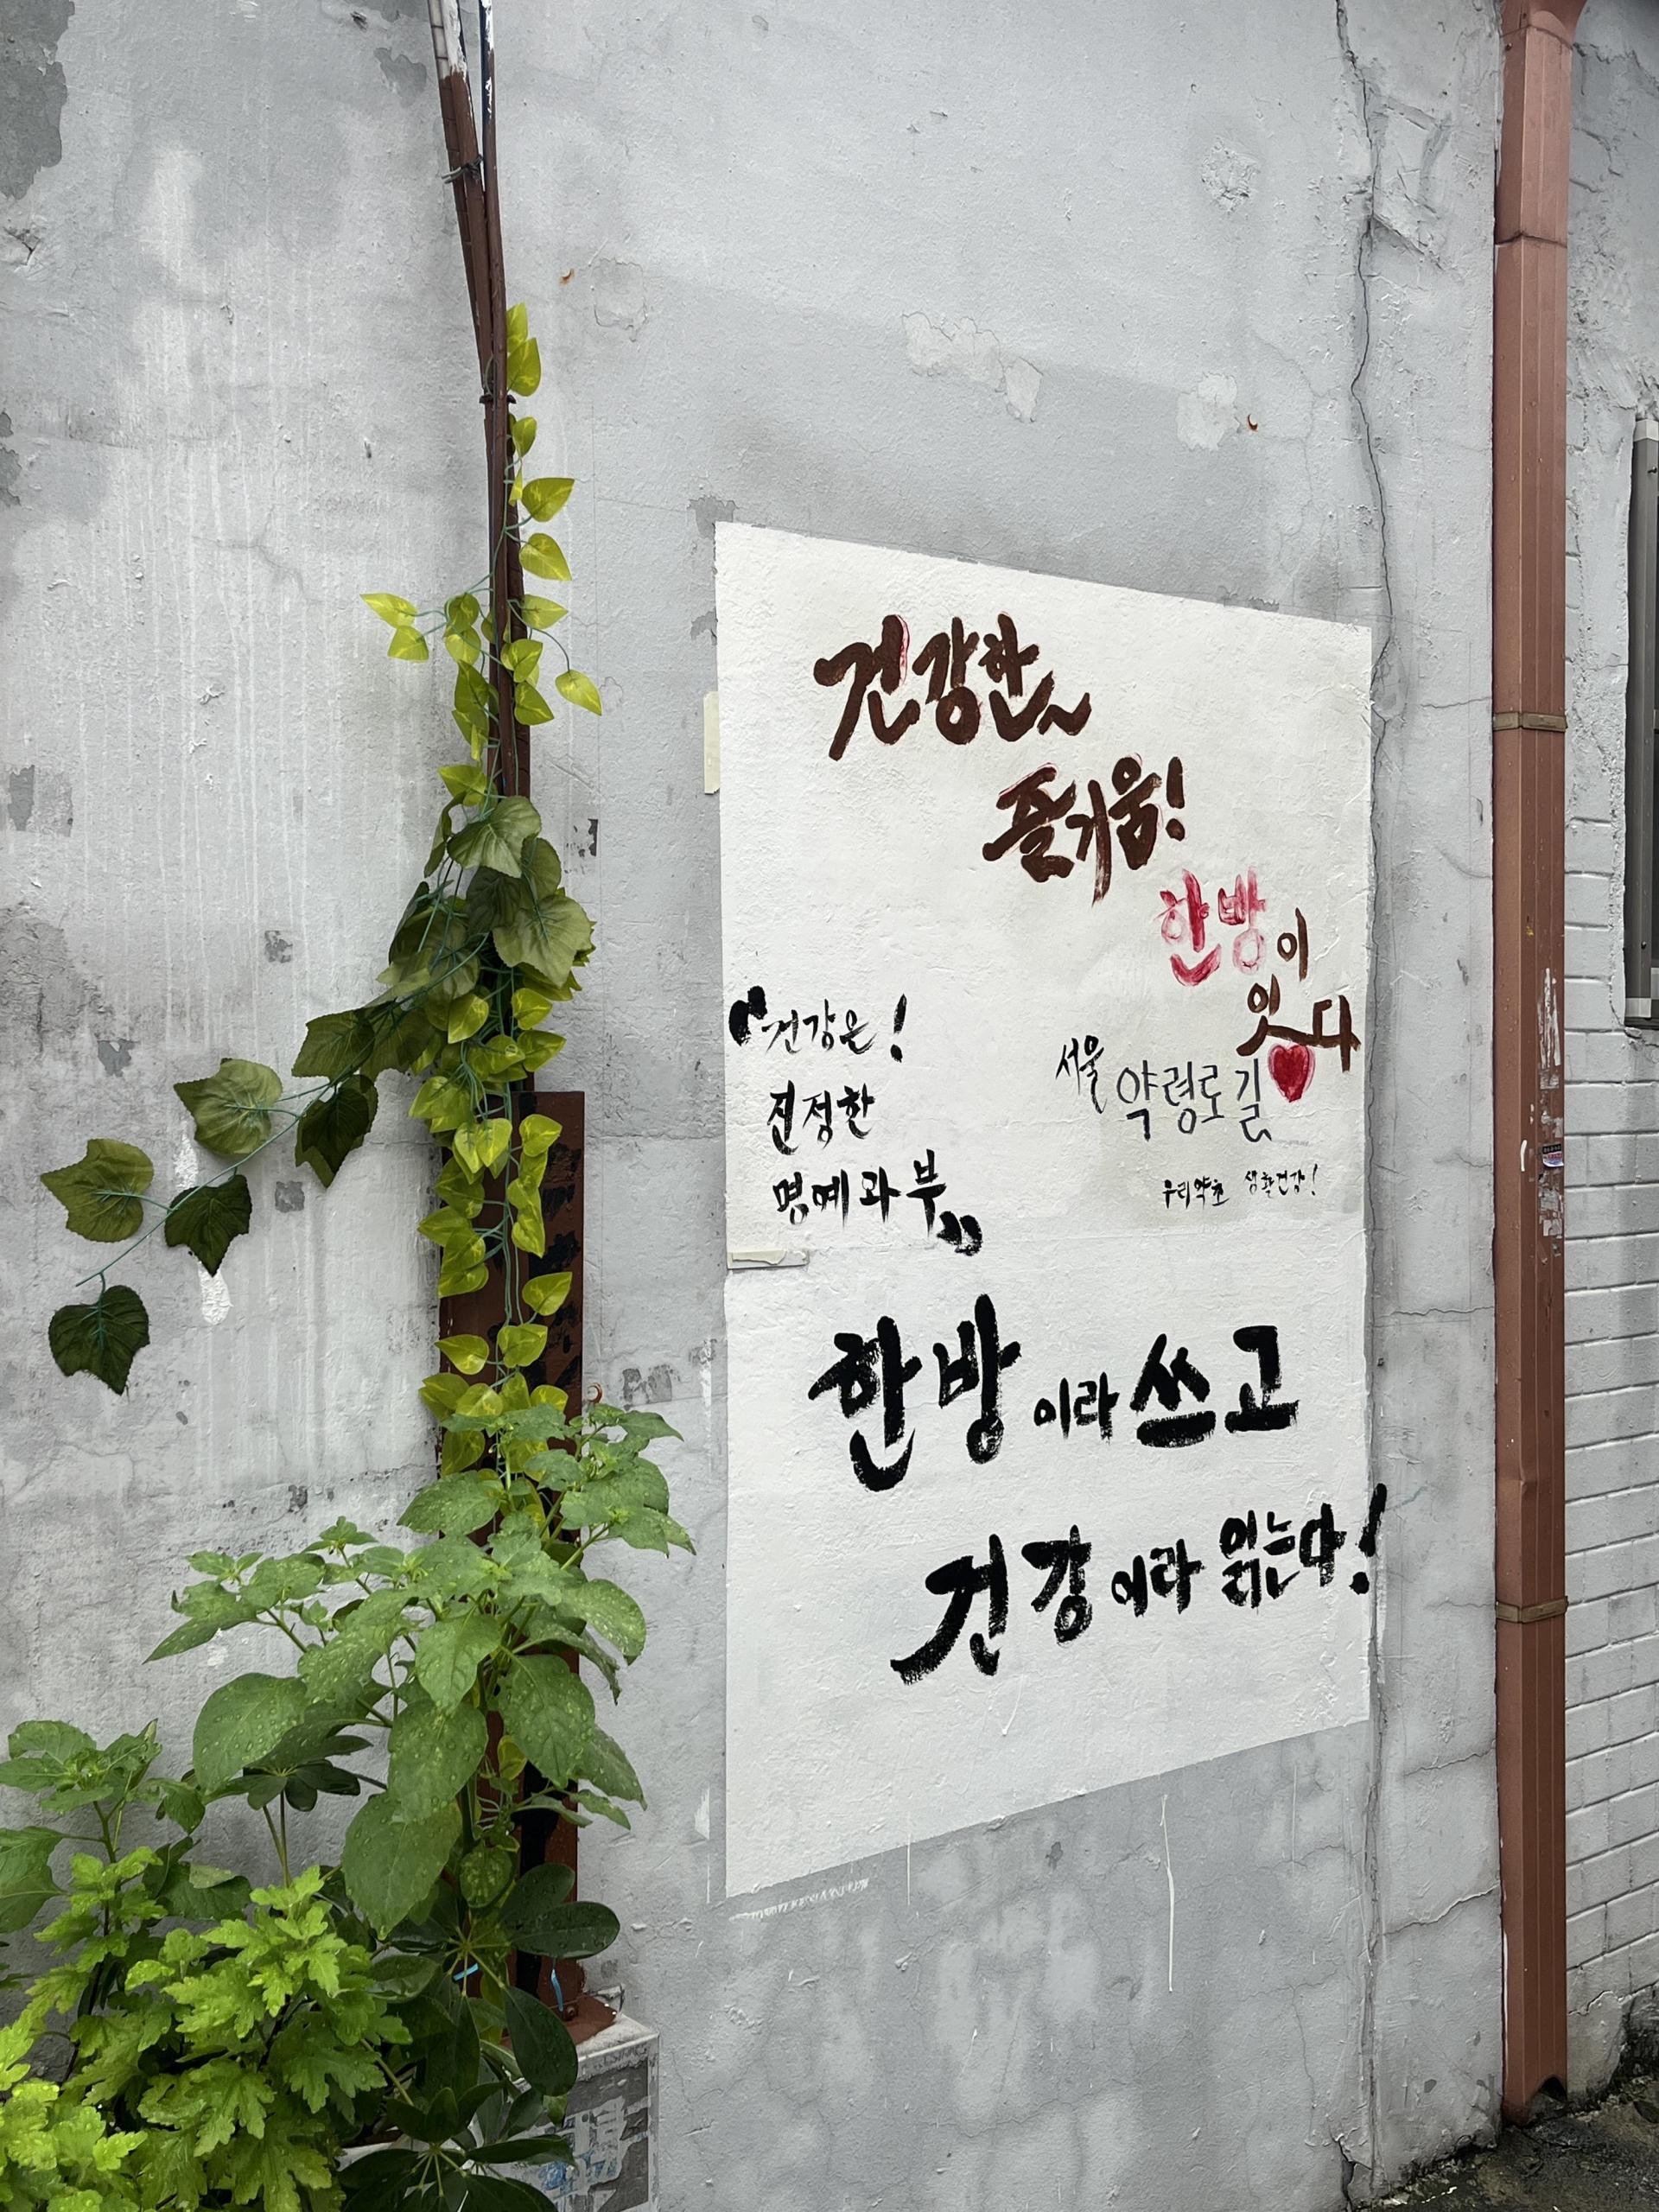 건강한~
즐거움!
한방이
잇다
서울 약령로길
우리약초 생활건강!
"건강은!
진정한
명예과부"
한방이라 쓰고
건강이라 읽는다!